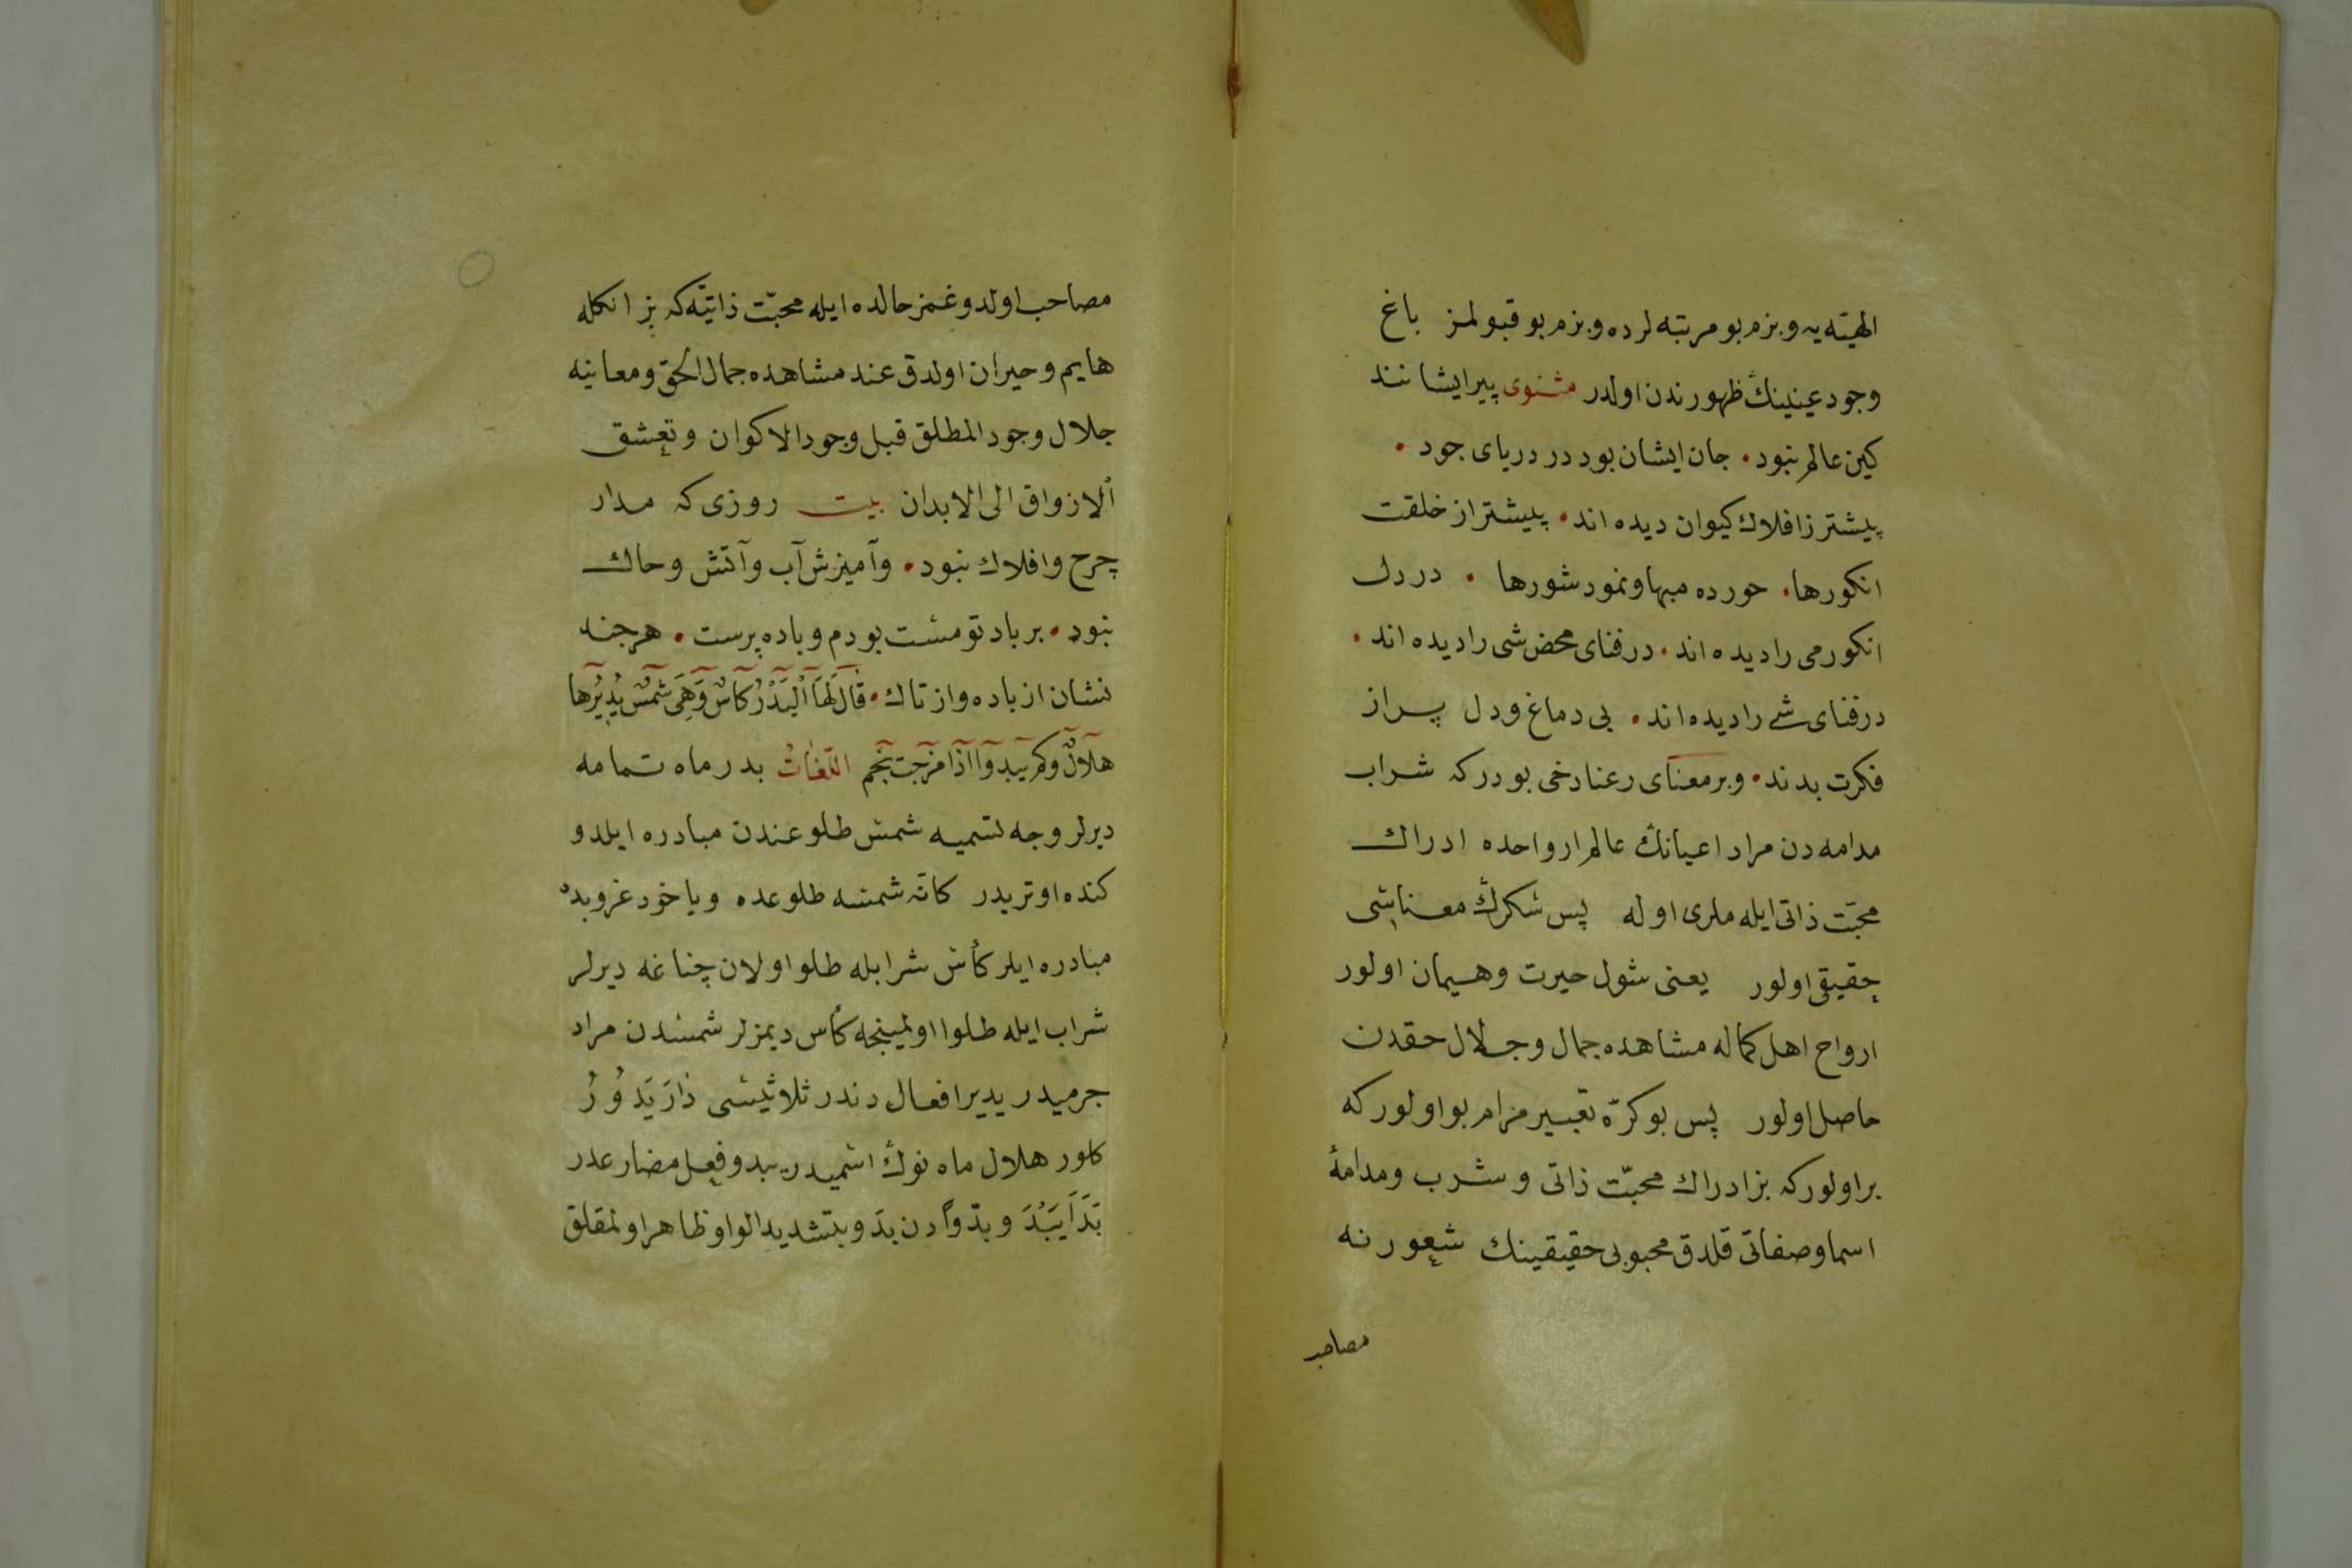 الهیّه یه و بزم بو مرتبه لرده و بزم بو قبولمز باغ
وجود عینینڭ ظهورندن اولدر مثنوی پیر ایشانند
کین عالم نبود. جان ایشان بود در دریای جود.
پیشتر ز افلاك کیوان دیده اند. پیشتر از خلقت
انکورها. حورده میها و نمود شورها. در دل
انکور می را دیده اند. در فنای محض شی را دیده اند.
در فنای شے را دیده اند. بی دماغ و دل پر از
فکرت بدند. و بر معنای رعنا دخی بودر که شراب
مدامه دن مراد اعیانڭ عالم ارواحده ادراك
محبّت ذاتی ایله ملری اوله پس سُکرڭ معناسی
حقیقی اولور یعنی شول حیرت و هیمان اولور
ارواح اهل کماله مشاهده جمال و جلال حقدن
حاصل اولور پس بو کرّه تعبیر مرام بو اولور که
بر اولور که بز ادراك محبّت ذاتی و شرب و مدامهٔ
اسما و صفاتی قلدق محبوبی حقیقینك شعورنه
مصاحب
مصاحب اولدوغمز حالده ایله محبّت ذاتیّه که بز انکله
هایم و حیران اولدق عند مشاهده جمال الحقّ و معانیه
جلال وجود المطلق قبل وجود الاکوان و تعشق
الازواق الی الابدان بیت روزی که مدار
چرح و افلاك نبود. و آمیزش آب و آتش و حاك
نبود. بر باد تو مست بودم و باده پرست. هرجند
نشان از باده و از تاك. قَالَ لَهَا الْبَدْرُ كَاسٌ وَهِيَ شَمْسٌ يُدِيْرُها
هلالٌ وكم يبدوا اذا مزجت نجم اللغاتُ بدر ماه تمامه
دیرلر وجه تسمیه شمس طلوعندن مبادره ایلدو
کنده اوتریدر کانّه شمسه طلوعده و یا خود غروبده
مبادره ایلر کأس شرابله طلو اولان چناغه دیرلر
شراب ایله طلوا اولمینجه کأس دیمزلر شمسدن مراد
جرمیدر یدیر افعال دندر ثلاثیسی دَارَ یَدُوُرُ
کلور هلال ماه نوڭ اسمیدر یبدو فعل مضارعدر
بَدَاَ یَبْدُ و بدّواً دن بدّو بتشدید الواو ظاهر اولمقلق